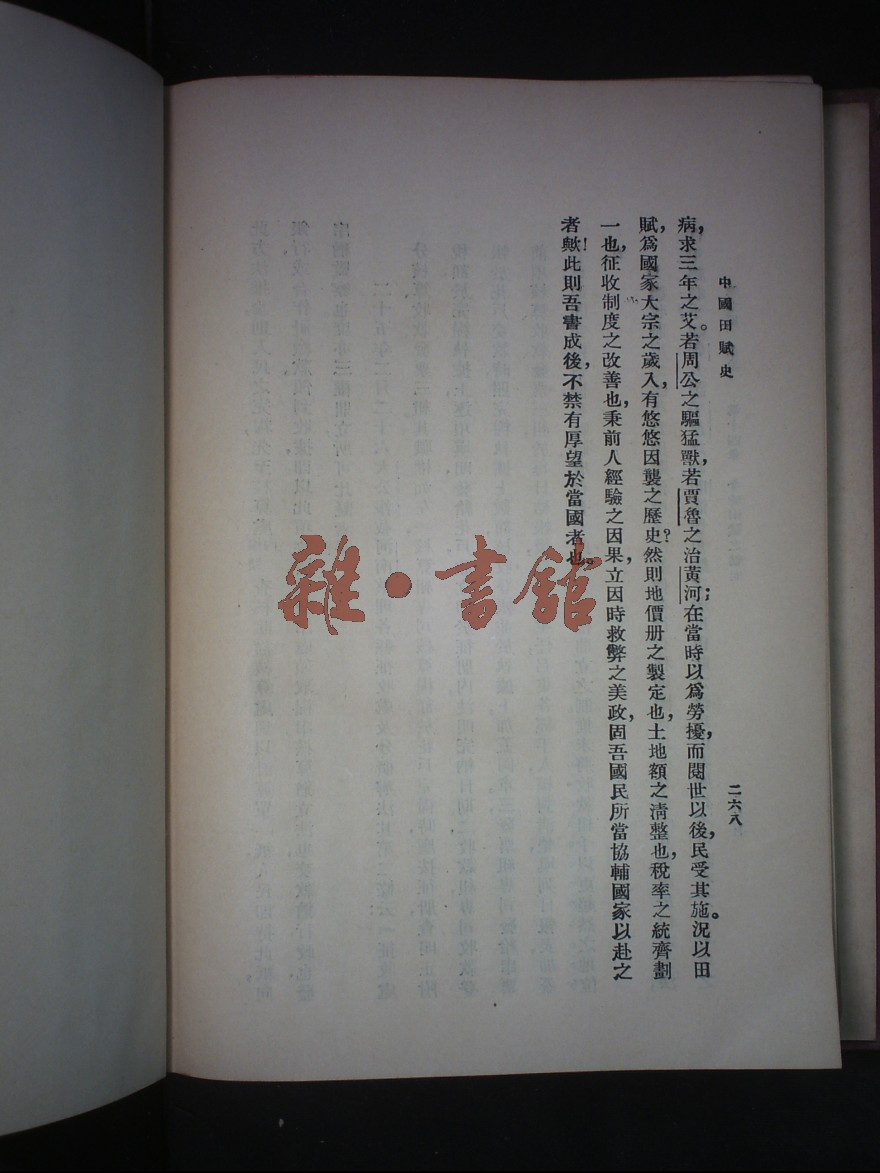 中國田賦史
二六八
病，求三年之艾。若周公之驅猛獸，若賈魯之治黃河；在當時以爲勞擾，而閱世以後，民受其施。況以田
賦，爲國家大宗之歲入，有悠悠因襲之歷史？然則地價册之製定也，土地額之淸整也，稅率之統齊劃
一也，征收制度之改善也，秉前人經驗之因果，立因時救弊之美政，固吾國民所當協輔國家以赴之
者歟！此則吾書成後，不禁有厚望於當國者也。
雜·書館